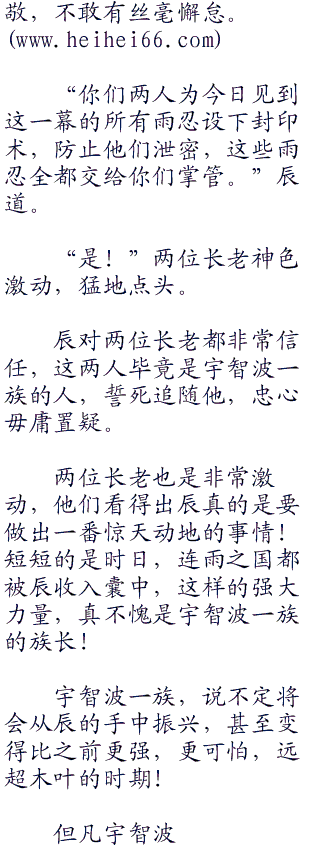 敬，不敢有丝毫懈怠。
(www.heihei66.com)
“你们两人为今日见到
这一幕的所有雨忍设下封印
术，防止他们泄密，这些雨
忍全都交给你们掌管。”辰
道。
“是！”两位长老神色
激动，猛地点头。
辰对两位长老都非常信
任，这两人毕竟是宇智波一
族的人，誓死追随他，忠心
毋庸置疑。
两位长老也是非常激
动，他们看得出辰真的是要
做出一番惊天动地的事情！
短短的是时日，连雨之国都
被辰收入囊中，这样的强大
力量，真不愧是宇智波一族
的族长！
宇智波一族，说不定将
会从辰的手中振兴，甚至变
得比之前更强，更可怕，远
超木叶的时期！
但凡宇智波